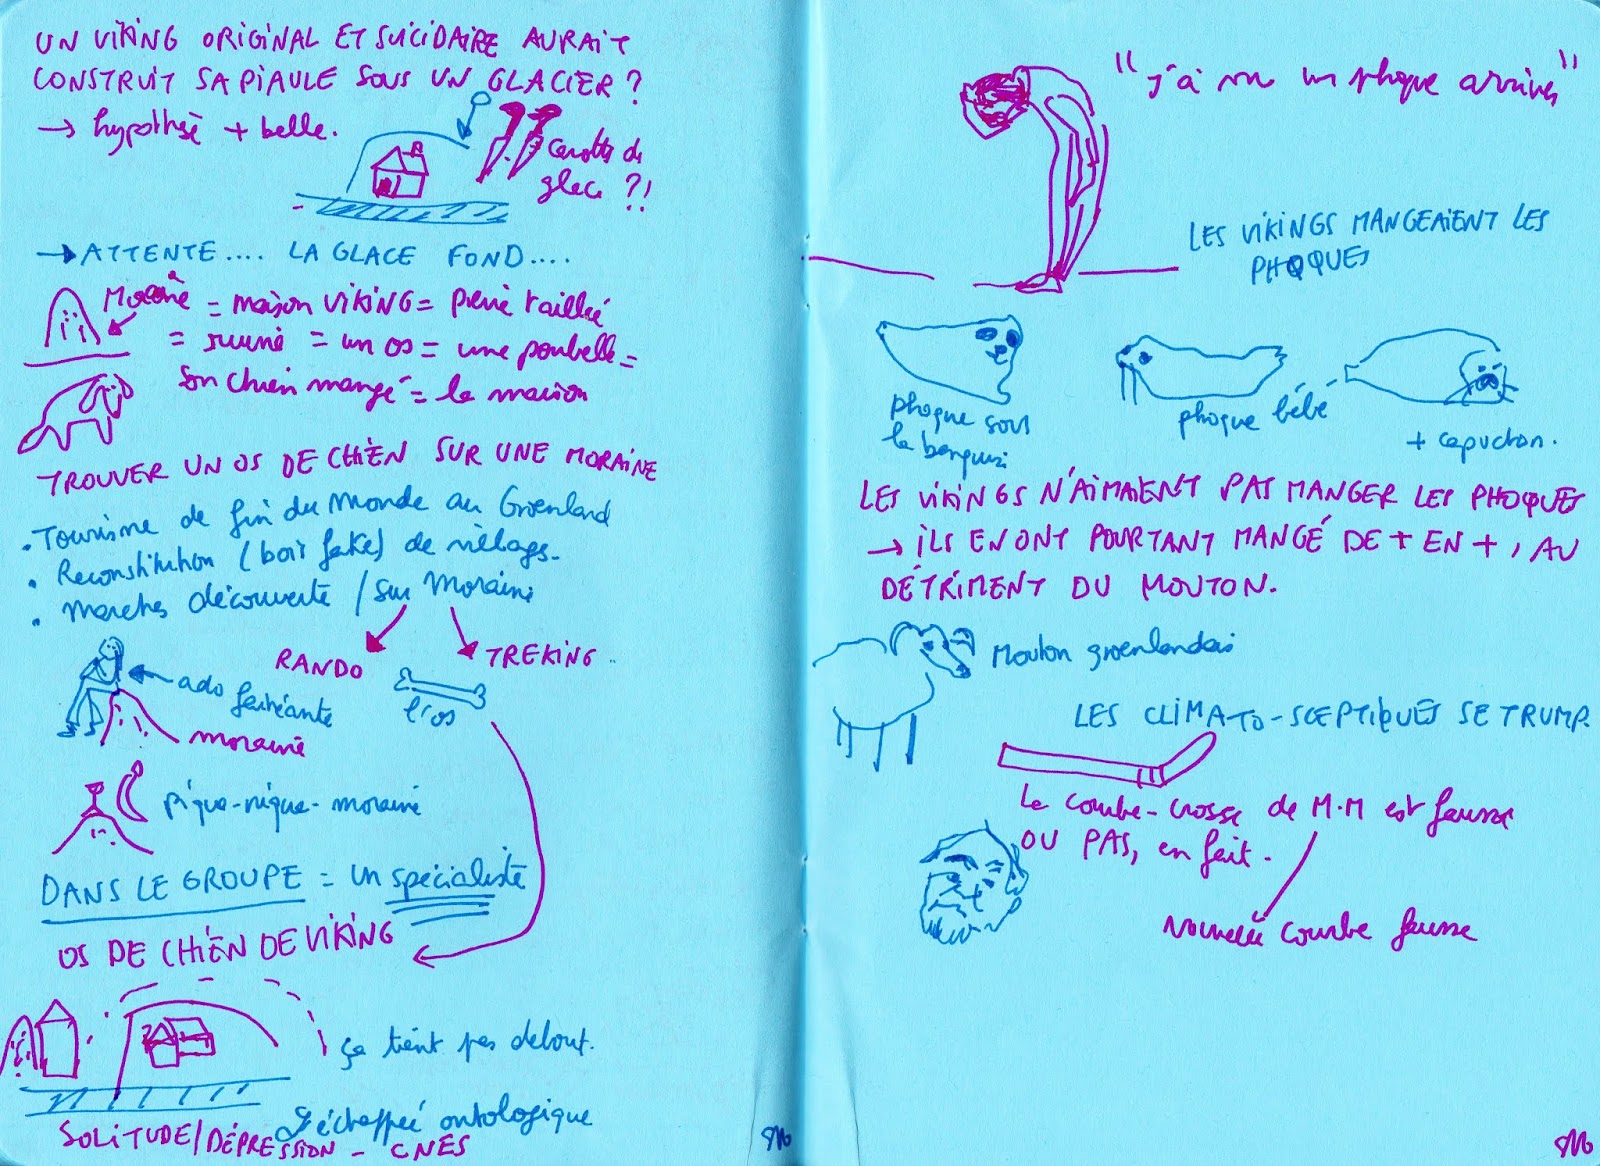 UN VIKING ORIGINAL ET SUICIDAIRE AURAIT
CONSTRUIT SA PIAULE SOUS UN GLACIER ?
→ hypothèse + belle.
Carottes de
glace ?!
→ ATTENTE.... LA GLACE FOND....
Moraine = maison VIKING = pierre taillée
= ruine = un os = une poubelle =
son chien mangé = la maison
TROUVER UN OS DE CHIEN SUR UNE MORAINE
. Tourisme de fin du monde au Groenland
. Reconstitution (bois fake) de village.
. Marches découverte / sur Moraine
RANDO
TREKING..
ado fainéante
l'os
moraine
pique-nique-moraine
DANS LE GROUPE = un spécialiste
OS DE CHIEN DE VIKING
ça tient pas debout.
échappée ontologique
SOLITUDE/DÉPRESSION - CNES
"j'ai vu un phoque arriver"
LES VIKINGS MANGEAIENT LES
PHOQUES
phoque sous
la banquise
phoque bébé
+ capuchon.
LES VIKINGS N'AIMAIENT PAS MANGER LES PHOQUES
→ ILS EN ONT POURTANT MANGÉ DE + EN +, AU
DÉTRIMENT DU MOUTON.
Mouton groenlandais
LES CLIMATO-SCEPTIQUES SE TRUMP.
La courbe-crosse de M.M est fausse
OU PAS, en fait.
Nouvelle courbe fausse